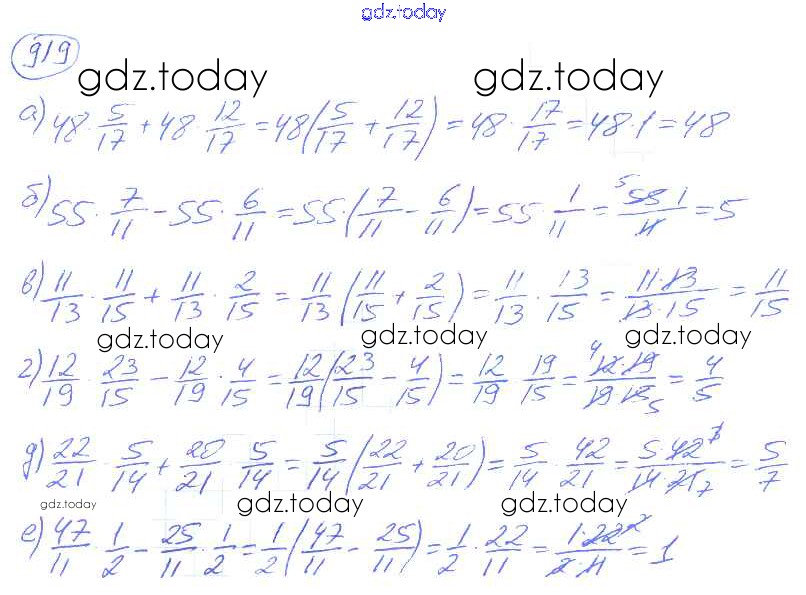 gdz.today
919
gdz.today gdz.today
а) 48 · 5/17 + 48 · 12/17 = 48(5/17 + 12/17) = 48 · 17/17 = 48 · 1 = 48
б) 55 · 7/11 − 55 · 6/11 = 55 · (7/11 − 6/11) = 55 · 1/11 = 5 55 1/11 = 5
в) 11/13 · 11/15 + 11/13 · 2/15 = 11/13 (11/15 + 2/15) = 11/13 · 13/15 = 11 · 13/13 · 15 = 11/15
gdz.today gdz.today gdz.today
г) 12/19 · 23/15 − 12/19 · 4/15 = 12/19 (23/15 − 4/15) = 12/19 · 19/15 = 4 12 · 19/19 · 15 5 = 4/5
д) 22/21 · 5/14 + 20/21 · 5/14 = 5/14 (22/21 + 20/21) = 5/14 · 42/21 = 5 · 42/14 · 21 7 = 5/7
gdz.today gdz.today gdz.today
е) 47/11 · 1/2 − 25/11 · 1/2 = 1/2 (47/11 − 25/11) = 1/2 · 22/11 = 1 · 22 2/2 · 11 = 1